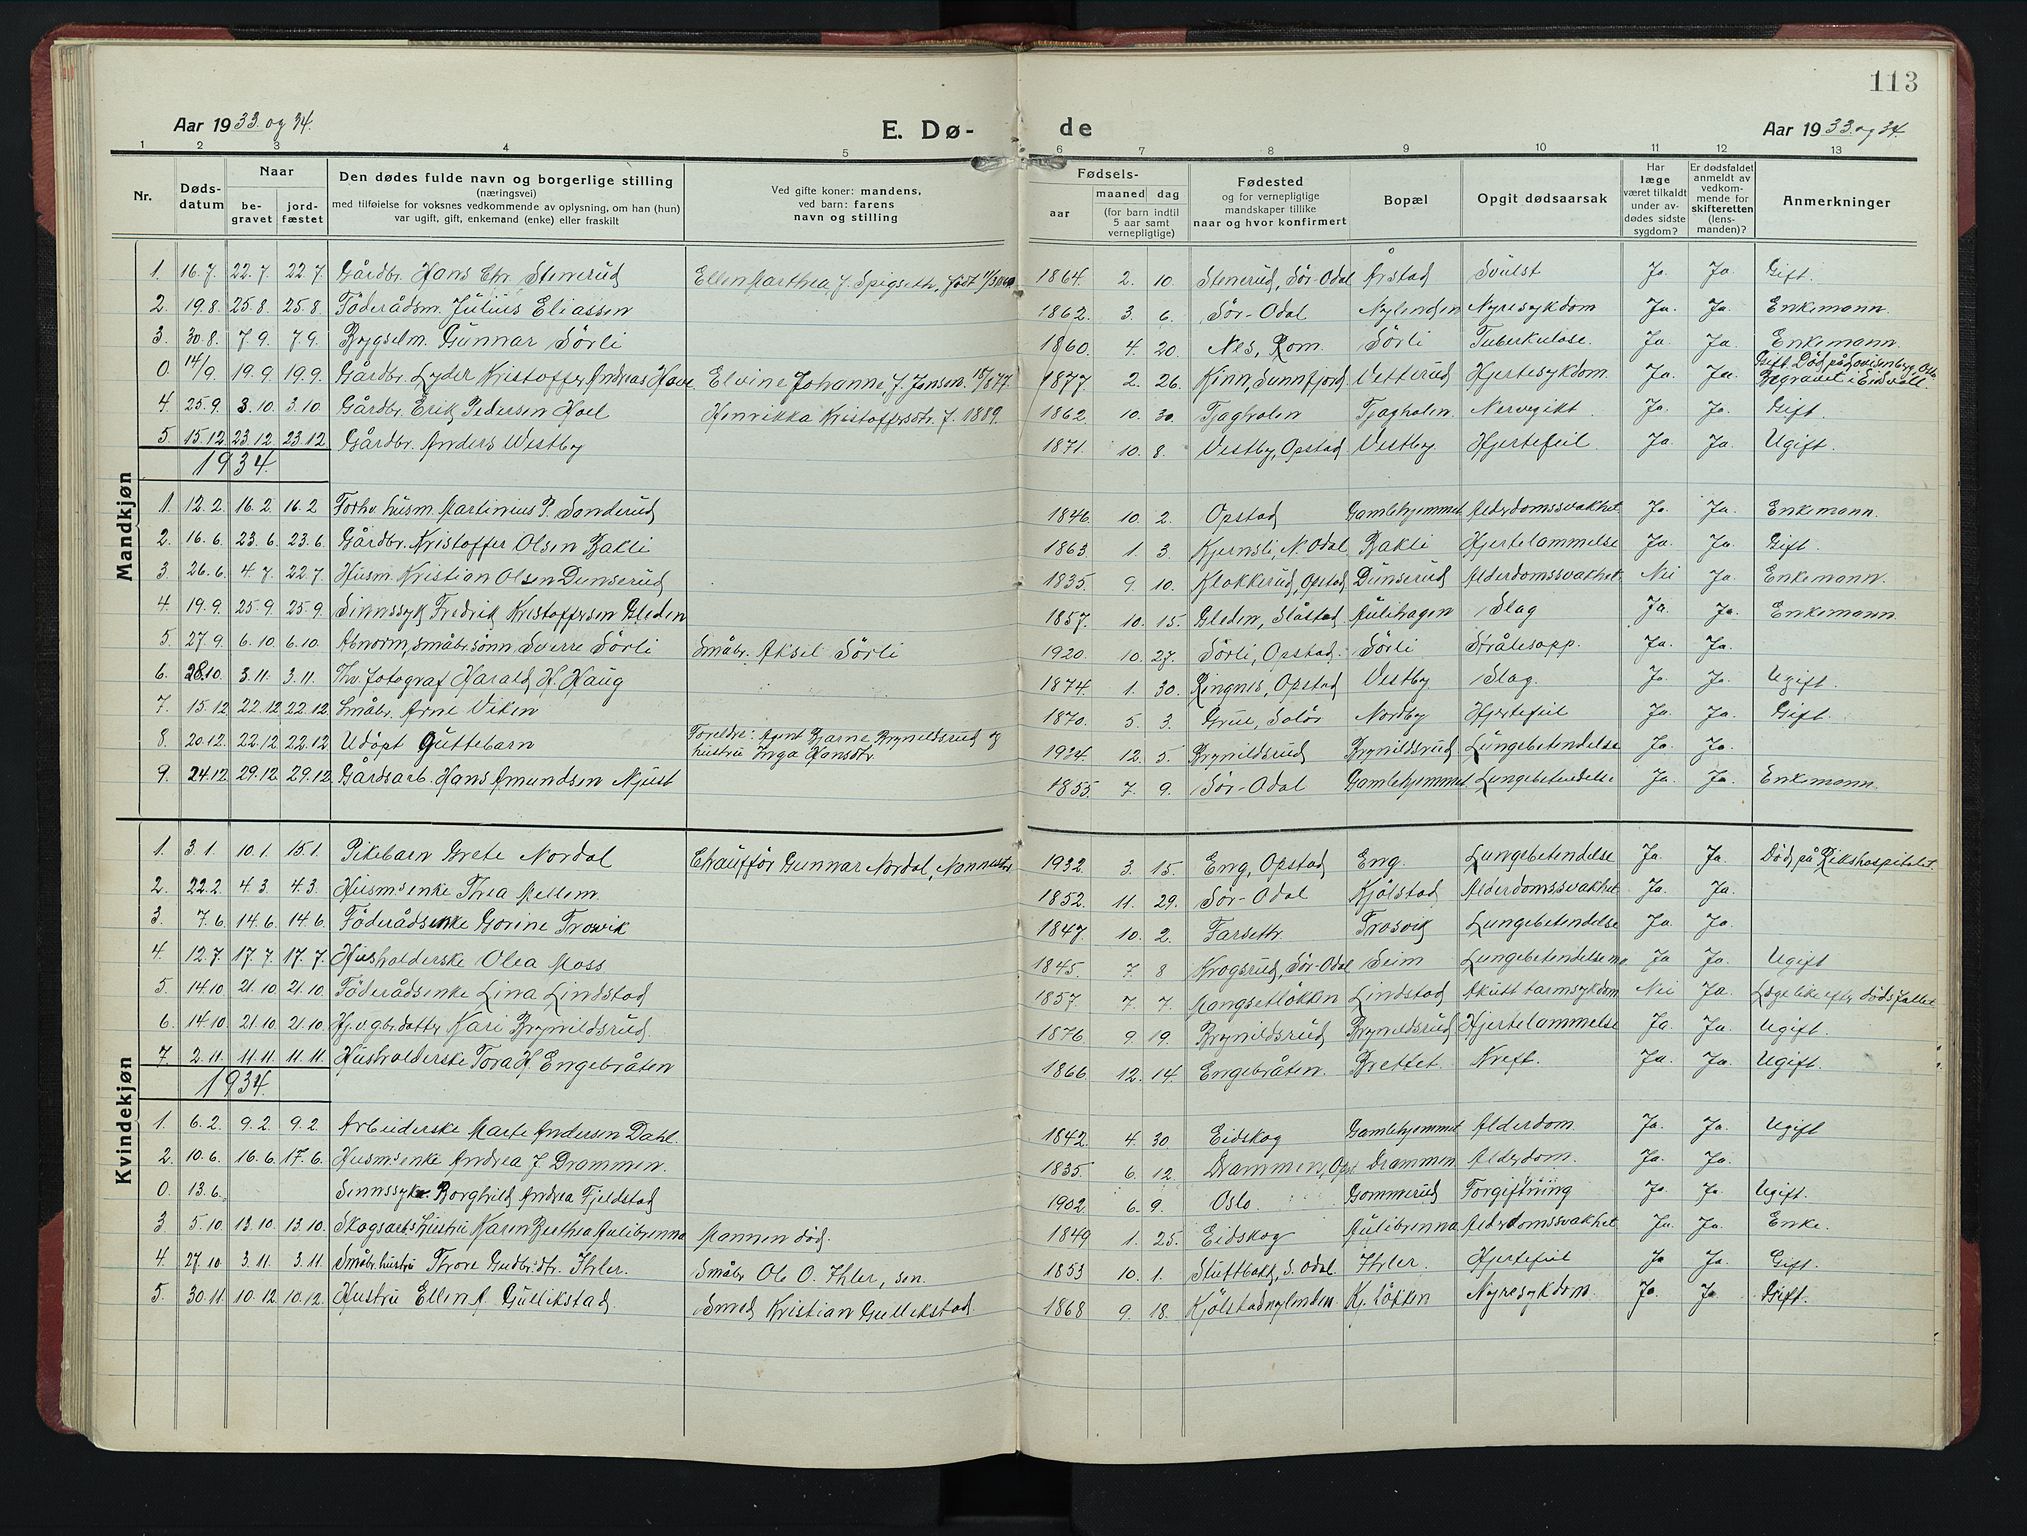 113
Aar 1933. og 34. E. Dø- de Aar 1933. og 34.
1 2 3 4 5 6 7 8 9 10 11 12 13
Nr. Døds-datum Naar be-gravet jord-fæstet Den dødes fulde navn og borgerlige stilling (næringsvei) med tilføielse for voksnes vedkommende av oplysning, om han (hun) var ugift, gift, enkemand (enke) eller fraskilt Ved gifte koner: mandens, ved barn: farens navn og stilling Fødsels- aar maaned dag (for barn indtil 5 aar samt vernepligtige) Fødested og for vernepligtige mandskaper tillike naar og hvor konfirmert Bopæl Opgit dødsaarsak Har læge været tilkaldt under av-dødes sidste sygdom? Er dødsfaldet anmeldt av vedkom-mende for skifteretten (lens-manden)? Anmerkninger
Mandkjøn
1. 16.7. 22.7. 22.7. Gårdbr. Hans Chr. Stenerud Ellen Marthea J. Spigseth, født 1864. 2. 10. Stenerud, Sør-Odal Årstad Svulst Ja. Ja. Gift.
2. 19.8. 25.8. 25.8. Föderådsm. Julius Eliassen 1862. 3. 6. Sör-Odal Nylenden Nyresykdom Ja. Ja. Enkemann.
3. 30.8. 7.9. 7.9. Bygselm. Gunnar Sörli 1860. 4. 20. Nes, Rom. Sörli Tuberkulose. Ja. Ja. Enkemann.
0. 14/9. 19.9. 19.9. Gårdbr. Lyder Kristoffer Andreas Hove Elvine Johanne J. Jensen 15/8 77. 1877. 2. 26. Kinn, Sunnfjord Vetterud Hjertesykdom Ja. Ja. Gift. Död på Lovisenberg, Oslo Begravet i Eidsvoll.
4. 25.9. 3.10. 3.10. Gårdbr. Erik Pedersen Hoel Henrikka Kristoffersdtr. f. 1889. 1862. 10. 30. Tjagholen Tjagholen. Nervegikt. Ja. Ja. Gift.
5. 15.12. 23.12. 23.12. Gårdbr. Anders Westby 1871. 10. 8. Vestby, Opstad Vestby. Hjertefeil. Ja. Ja. Ugift.
1934.
1. 12.2. 16.2. 16.2. Forhv. husm. Martinius P. Sanderud 1846. 10. 2. Opstad Gamlehjemmet Alderdomssvakhet. Ja. Ja. Enkemann.
2. 16.6. 23.6. 23.6. Gårdbr. Kristoffer Olsen Bakli 1863. 1. 3. Kjernsli, N. Odal Bakli Hjertelammelse Ja. Ja. Gift.
3. 26.6. 4.7. 22.7. Husm. Kristian Olsen Dunserud 1835. 9. 10. Klokkerud, Opstad Dunserud Alderdomssvakhet. Nei Ja. Enkemann.
4. 19.9. 25.9. 25.9. Sinnssyk Fredrik Kristoffersen Gleden 1857. 10. 15. Gleden, Slåstad Aulihagen Slag Ja. Ja. Enkemann.
5. 27.9. 6.10. 6.10. Abnorm, småbr.sönn Sverre Sörli Småbr. Aksel Sörli 1920. 10. 27. Sörli, Opstad. Sörli Strålesopp. Ja. Ja.
6. 28.10. 3.11. 3.11. Fhv. fotograf Harald H. Haug 1874. 1. 30. Ringnes, Opstad Vestby. Slag. Ja. Ja. Ugift.
7. 15.12. 22.12. 22.12. Småbr. Arne Viken 1870. 5. 3. Grue, Solör Nordby Hjertefeil Ja. Ja. Gift.
8. 20.12. 22.12. 22.12. Udöpt Guttebarn Foreldre: Agent Bjarne Brynildsrud og hustru Inga Hansdtr. 1934. 12. 5. Brynildsrud Brynildsrud Lungebetendelse Ja. Ja.
9. 24.12. 29.12. 29.12. Gårdsarb. Hans Amundsen Njust 1855. 7. 9. Sör-Odal Gamlehjemmet Lungebetendelse Ja. Ja. Enkemann.
Kvindekjøn
1. 3.1. 10.1. 15.1. Pikebarn Grete Nordal Chaufför Gunnar Nordal, 1932. 3. 15. Eng, Opstad Eng. Lungebetendelse Ja. Ja. Död på Rikshospitalet.
2. 22.2. 4.3. 4.3. Husmsenke Thea Mellem. 1852. 11. 29. Sör-Odal Kjölstad Alderdomssvakhet Ja. Ja.
3. 7.6. 14.6. 14.6. Föderådsenke Gorine Trosvik 1847. 10. 2. Farseth. Trosvik Lungebetendelse Ja. Ja.
4. 12.7. 17.7. 17.7. Husholderske Olea Moss 1845. 7. 8 Krogsrud, Sör-Odal Seim Lungebetendelse Ja Ja. Ugift
5. 14.10 21.10. 21.10. Föderådsenke Lina Lindstad 1857. 7. 7. Mangsetlökken Lindstad Akutt tarmsykdom Nei Ja. Lege like efter dödsfallet
6. 14.10. 21.10. 21.10. Hj.v. gbr.datter Kari Brynildsrud. 1876. 9 19. Brynildsrud Brynildsrud Hjertelammelse Ja. Ja. Ugift.
7. 2.11. 11.11. 11.11. Husholderske Tora H. Engebråten 1866. 12. 14. Engebråten. Brettet. Kreft. Ja. Ja. Ugift.
1934.
1. 6.2. 9.2. 9.2. Arbeiderske Marte Andersen Dahl. 1842. 4. 30. Eidskog Gamlehjemmet Alderdom. Ja. Ja. Ugift
2. 10.6. 16.6. 17.6. Husmsenke Andrea J. Drammen. 1835. 6. 12. Drammen, Ops. Drammen Alderdom. Ja. Ja.
0. 13.6. Sinnssyke Borghild Andrea Fjeldstad 1902. 6. 9. Oslo Gommerud Forgiftning Ja. Ja. Ugift.
3. 5.10. 13.10. 13.10. Skogsarb.s hustru Karen Berthea Aulibrenna Mannen död. 1849 1. 25. Eidskog Aulibrenna Alderdomssvakhet Ja. Ja. Enke.
4. 27.10. 3.11. 3.11. Småbr.hustru Thore Gudbr.dtr. Ihler. Småbr Ole O. Ihler, sen. 1853 10. 1. Sluttbakk, S. Odal. Ihler. Hjertefeil Ja Ja. Gift.
5. 30.11 10.12. 10.12. Hustru Ellen A. Gullikstad Smed Kristian Gullikstad 1868 9. 18. Kjölstadnylenden Kj. lökken Nyresykdom. Ja Ja Gift.